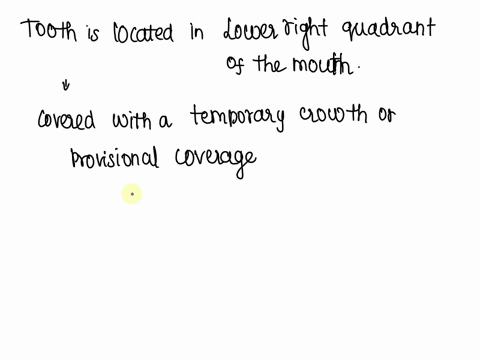 Tooth is located in Lower right quadrant
of the mouth.
covered with a temporary crowth or
provisional coverage